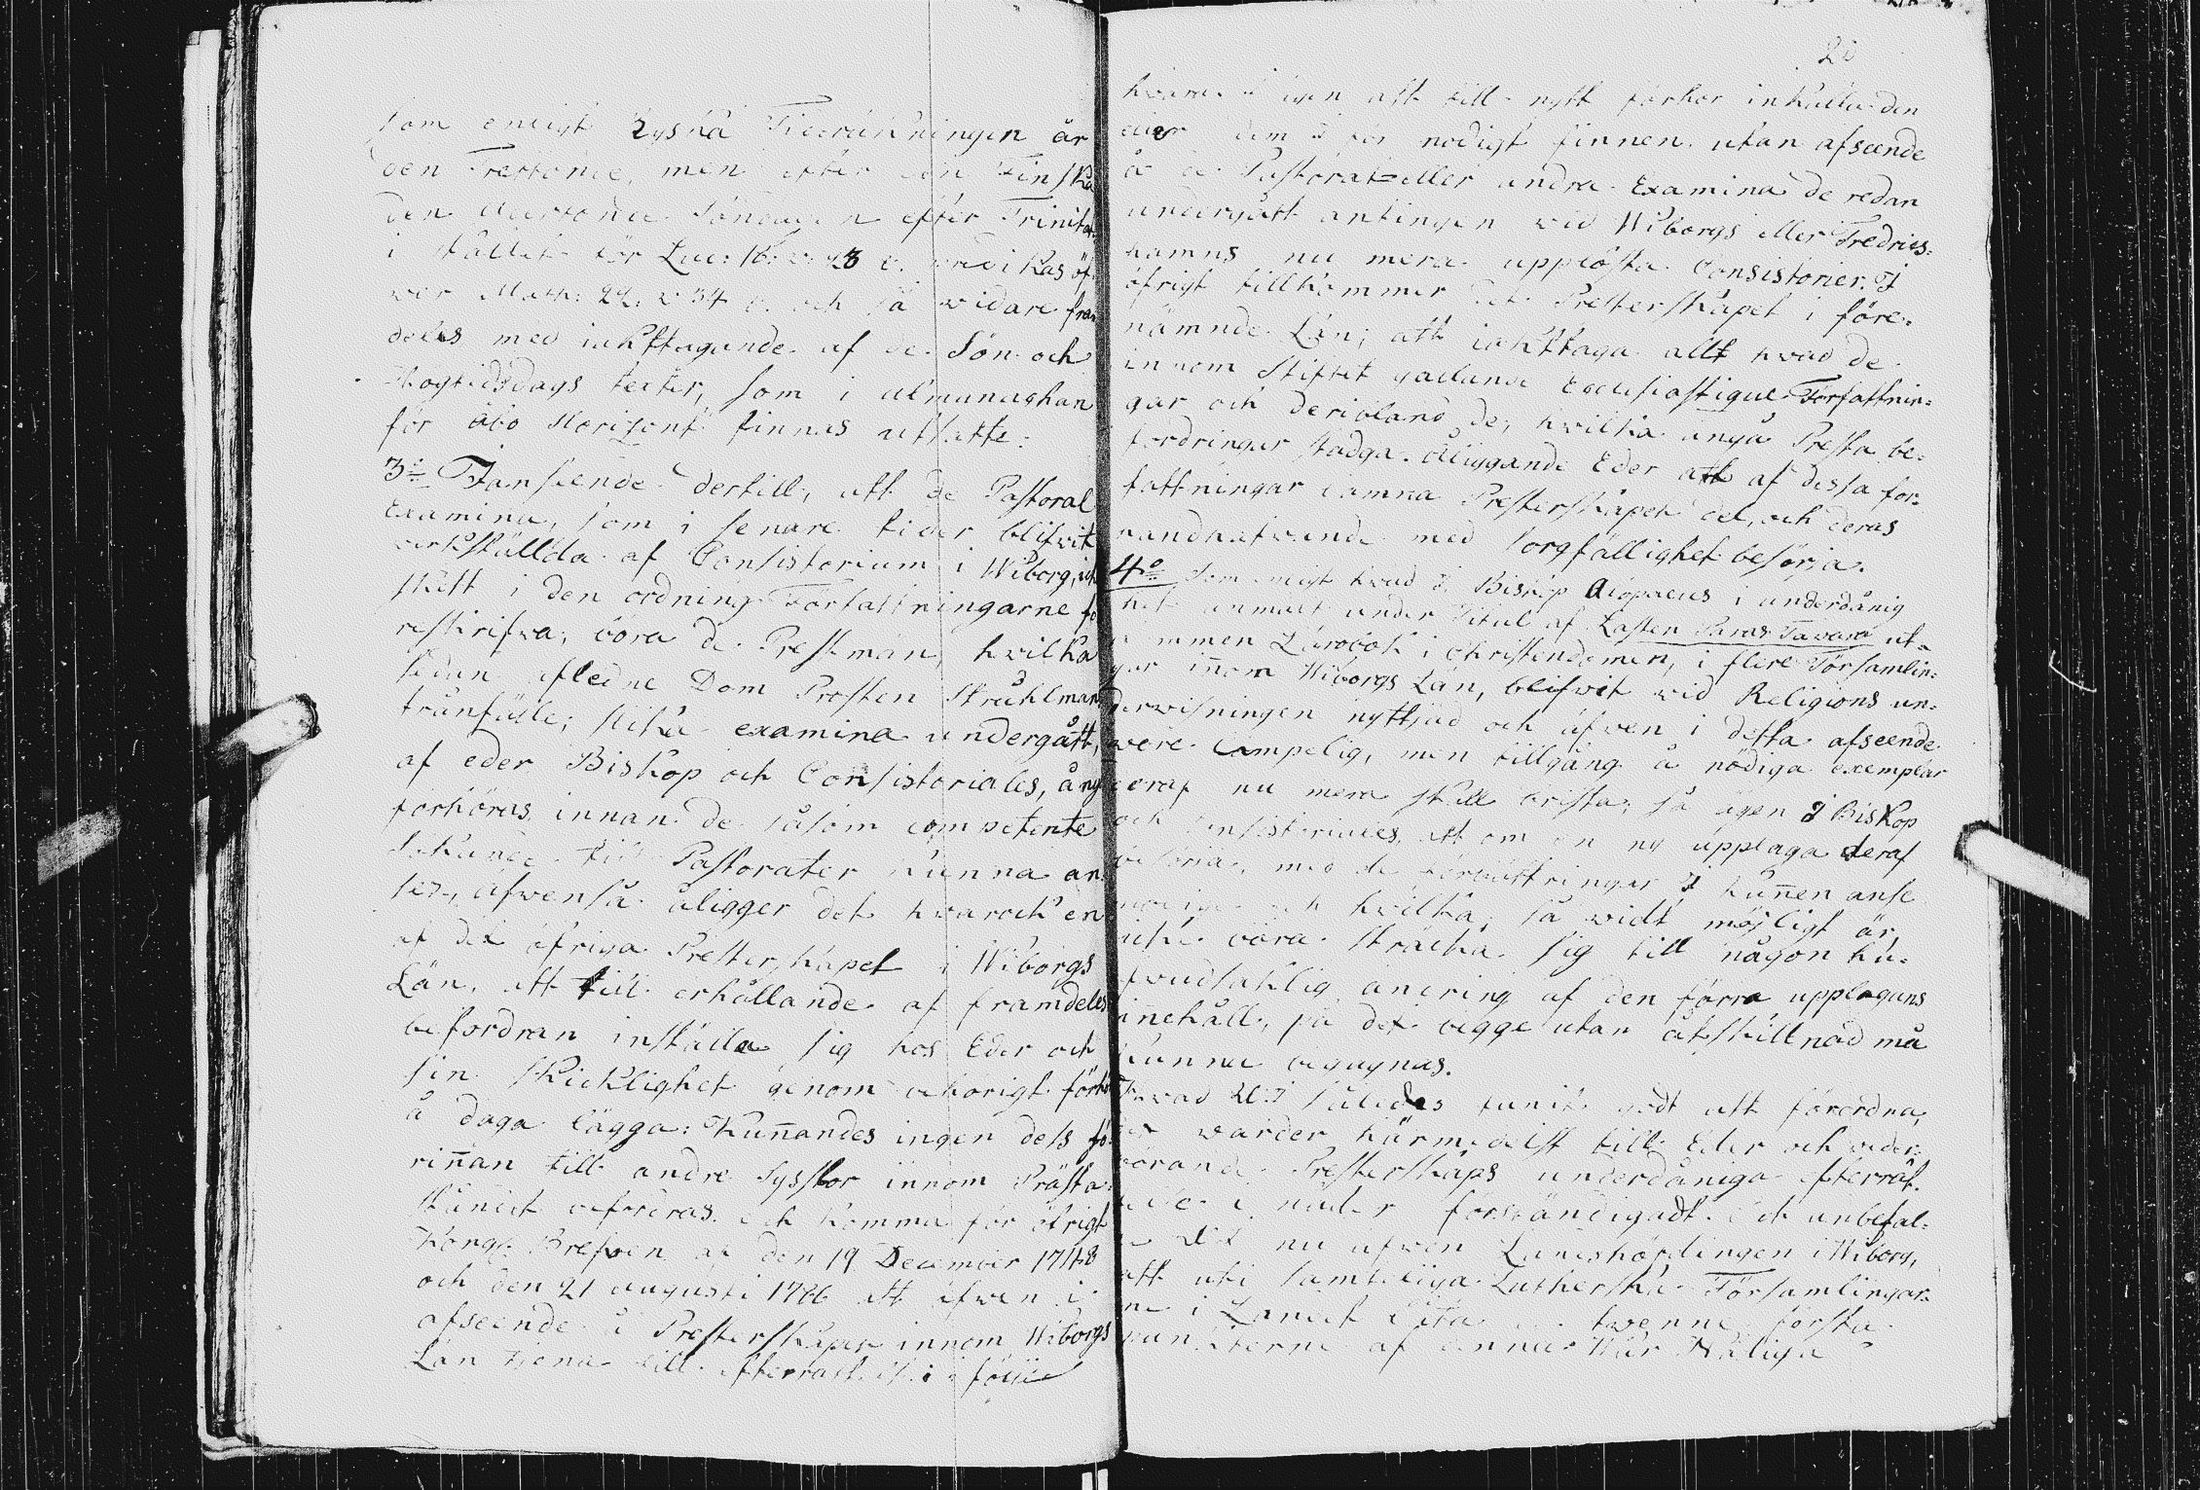 som enligt Ryska Tideräkningen är
den Trettonde, men efter den Finska
den Adertonde Söndagen efter Trinitat:
i stället för Luc: 16: v. 23 o. predikas öf-
wer Math: 22: v 34 o. och så widare fram
deles med iakttagande af de Sön och
Högtidsdags texter, som i almanachan
för Åbo Horizont finnas utsatte:
3:o I anseende dertill, att de Pastoral
Examina, som i senare tider blifwit
werkställda af Consistorium i Wiborg, icke
skett i den ordning Författningarne fö
reskrifwa; böra de Prestman, hvilka
sedan afledne Dom Prosten Strahlman
frånfälle; slika examina undergått,
af eder Biskop och Consistoriales, ånyo
förhöras, innan de såsom competente
Sökande till Pastorater kunna an-
ses, äfwenså åligger det hwar och en
af det öfriga Presterskapet i Wiborgs
Län, att till erhållande af framdeles
befordran inställa sig hos Eder och
sin skicklighet genom behörigt förhör
å daga lägga: Kunnandes ingen dess fö-
rinnan till andre Sysslor innom Prästa-
ståndet befordras. och komma för öfrigt
Kongl: Brefwen af den 19 December 1748
och den 21 augusti 1786 att äfwen i
afseende å Presterskapet innom Wiborgs
Län tjena till efterrättelse i följe
20
hwaraf I ägen att till nytt förhör inkalla den
eller dem I för nödigt finnen utan afseende
å de Pastorat eller andra Examina de redan
undergått antingen wid Wiborgs eller Fredrics-
hamns nu mera upplösta Consistorier. I
öfrigt tillkommer det Presterskapet i före-
nämnde Län; att iakttaga allt hwad de
innom Stiftet gällande Ecclesiastique Författnin-
gar och deribland de, hwilka angå Presta be-
fordringar stadga. åliggande Eder att af dessa för-
fattningar lämna Presterskapet del, och deras
handhafwande med sorgfällighet besörja.
4:o Som enligt hwad I Biskop Alopaeus i underdånig
het anmält under Titul af Lasten Paras Tawara ut-
kommen Lärobok i Christendomen, i flere Församlin-
gar innom Wiborgs Län, blifwit wid Religions un-
derwisningen nyttjad och äfwen i detta afseende
wore lämpelig, men tillgång å nödiga exemplar
deraf nu mera skall brista; så ägen I Biskop
och Consistoriales, att om en ny upplaga deraf
besörja, med de förbättringar I kunnen anse
nödige och hwilka, så widt möjligt är,
icke böra sträcka sig till någon hu-
fwudsaklig ändring af den förra upplagans
innehåll, på det begge utan åtskillnad må
kunna begagnas.
Hwad Wi således funnit godt att förordna,
der warder härmedelst till Eder och weder-
börande Presterskaps underdåniga efterrät-
telse i nåder förständigadt. Och anbefal-
le Wi nu äfwen Landshöfdingen i Wiborg,
att uti samtelige Lutherska Församlingar-
ne i Länet låta de twenne första
punkterne af denna Wår Nådiga